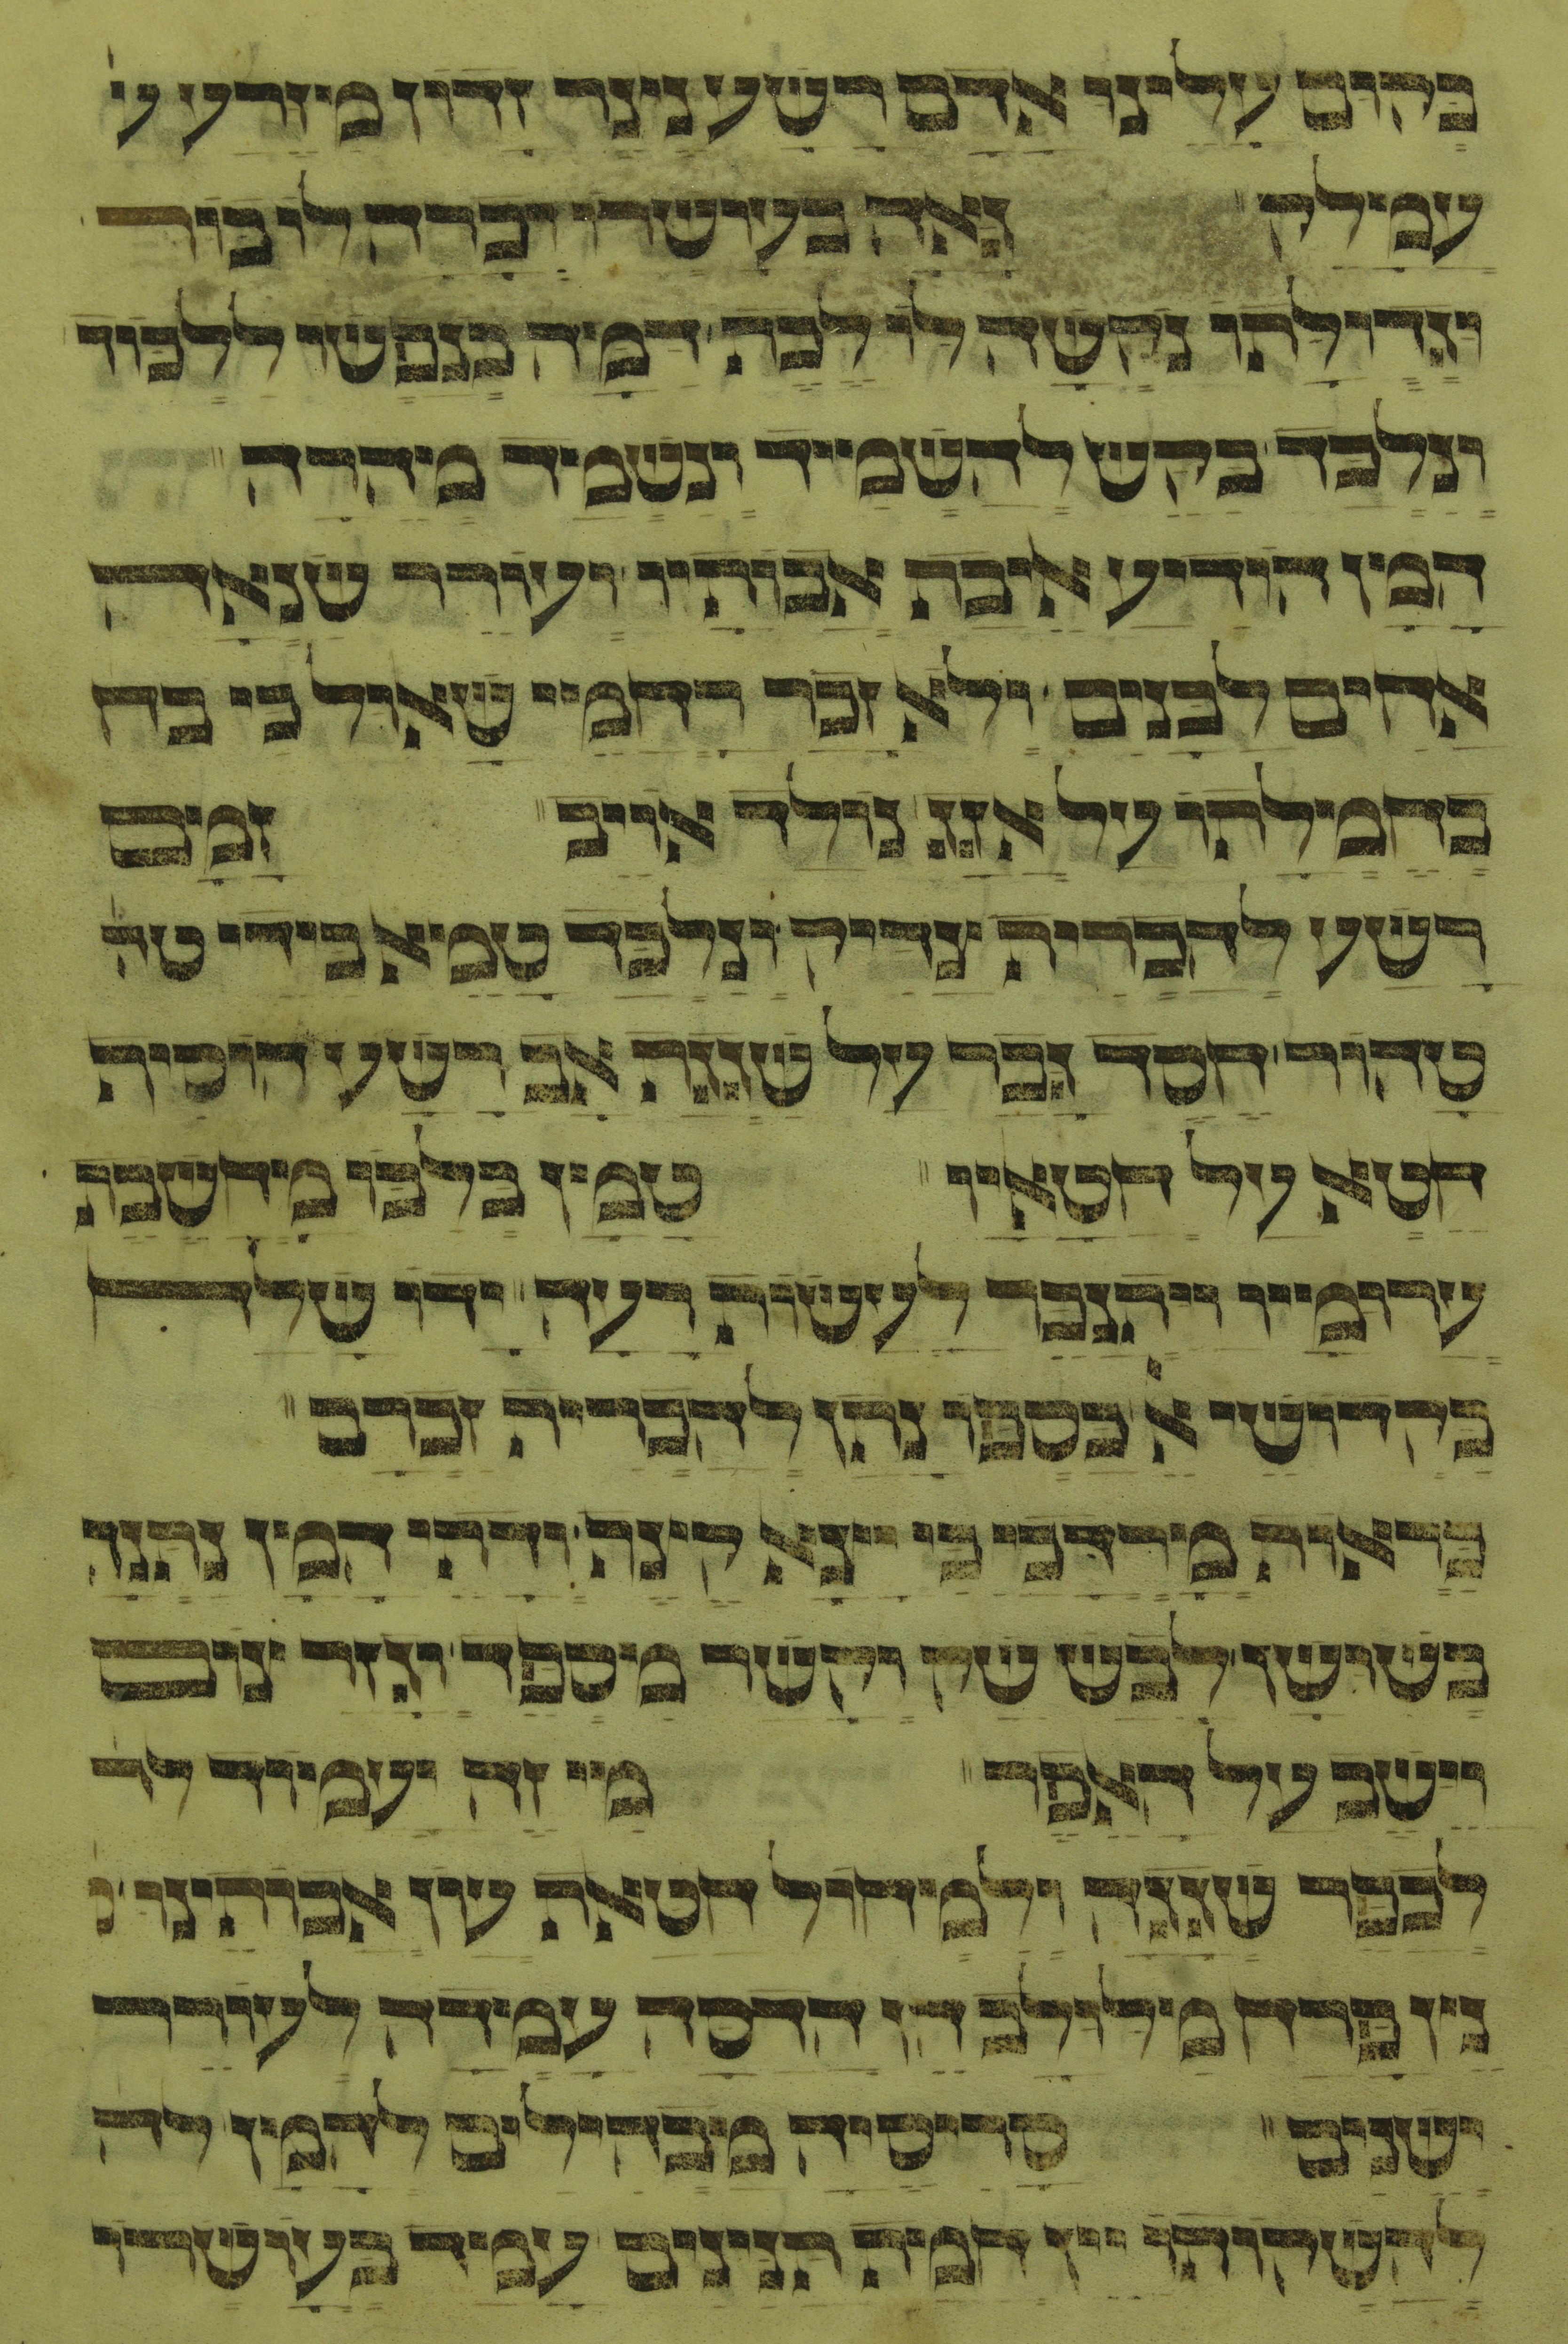 בקום עלינו אדם רשע נצר זדון מזרע ע
עמלק גאה בעושרו וכרה לו בור
וגדולתו נקשה לו לכד דמה בנפשו ללכוד
ונלכד בקש להשמיד ונשמד מהרה
המן הודיע איבת אבותיו ועורר שנאת
אחים לבנים ולא זכר רחמי שאול כי בח
בחמלתו על אגג נולד אויב זמם
רשע להכרית צדיק ונלכד טמא בידי טה
טהור חסד גבר על שגגת אב ורשע הוסיף
חטא על חטאיו טמן בלבו מחשבת
ערומיו ויתנכר לעשות רעה ידו שלח
בקדושי א כספו נתן להכרית זכרם
כראות מרדכי כי יצא קצף ודתי המן נתנו
בשושן לבש שק וקשר מספד וגזר צום
וישב על האפר מי זה יעמוד לכ
לכפר שגגה ולמחול חטאת עון אבותינו נ
נץ פרח מלולב הן הדסה עמדה לעורר
ישנים סריסיה מבהילים להמן לה
להשקותו יין חמת תנינים עמד בעושרו